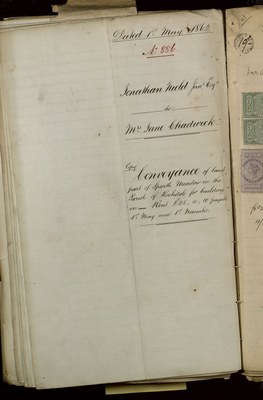 Dated 1st May 1862
No. 886
Jonathan Nield Junr. Esqr.
to
Mrs. Jane Chadwick
Copy
Conveyance of land
part of Spotth Meadow in the
Parish of Rochdale for building
on — Rent £
1st May and 1st November